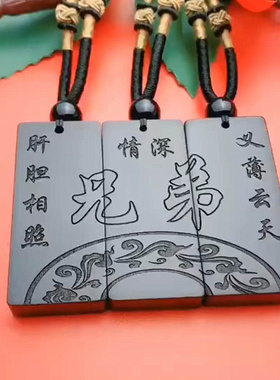 肝胆相照
情深
兄弟
义薄云天